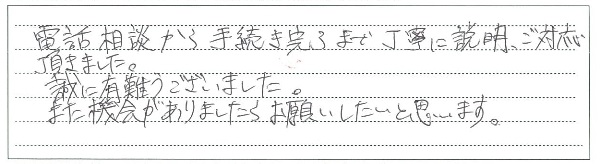 電話相談から手続き完了まで丁寧に説明、ご対応
頂きました。
誠に有難うございました。
また機会がありましたらお願いしたいと思います。